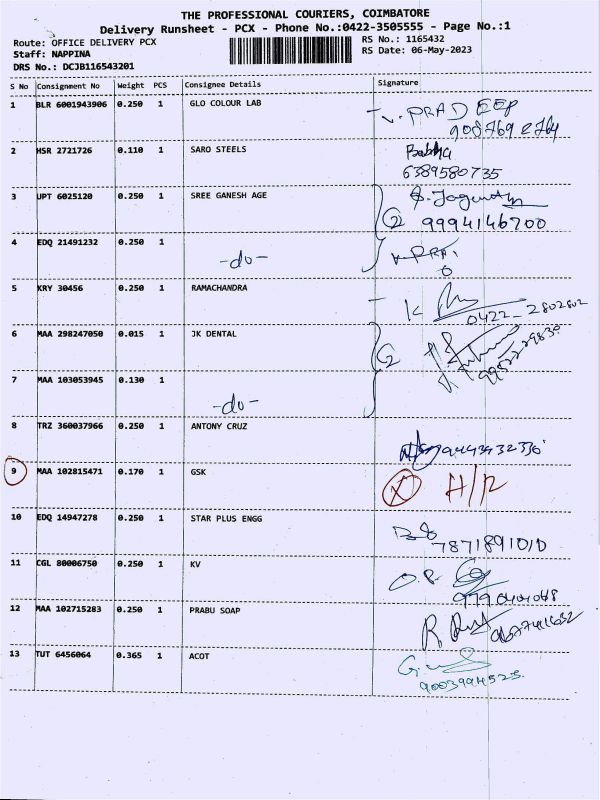 THE PROFESSIONAL COURIERS, COIMBATORE
Delivery Runsheet - PCX - Phone No.:0422-3505555 - Page No.:1
Route: OFFICE DELIVERY PCX RS No.: 1165432
Staff: NAPPINA RS Date: 06-May-2023
DRS No.: DCJB116543201
S No Consignment No Weight PCS Consignee Details Signature
1 BLR 6001943906 0.250 1 GLO COLOUR LAB PRADEEP
908769 2764
2 HSR 2721726 0.110 1 SARO STEELS
6389580735
3 UPT 6025120 0.250 1 SREE GANESH AGE
2 9994146700
4 EDQ 21491232 0.250 1 -do-
5 KRY 30456 0.250 1 RAMACHANDRA K
0422-2802802
6 MAA 298247050 0.015 1 JK DENTAL 2
7 MAA 103053945 0.130 1 -do-
8 TRZ 360037966 0.250 1 ANTONY CRUZ
9 MAA 102815471 0.170 1 GSK X H/R
10 EDQ 14947278 0.250 1 STAR PLUS ENGG
7871891010
11 CGL 80006750 0.250 1 KV
12 MAA 102715283 0.250 1 PRABU SOAP R
13 TUT 6456064 0.365 1 ACOT
9003994525